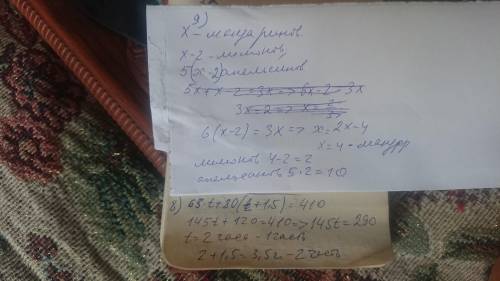 9)
x – мандаринов.
x-2 – лимонов,
5(x-2) апельсинов
5x+x-2=3x=>6x-2=3x
3x=2=> x=
6(x-2)=3x=> x=2x-4
x=4 - мандар
лимонов 4-2=2
апельсинов 5·2=10
8) 65t+80(t+1,5)=410
145t+120=410=>145t=290
t=2 часа – 1 часть
2+1,5=3,5ч – 2 часть